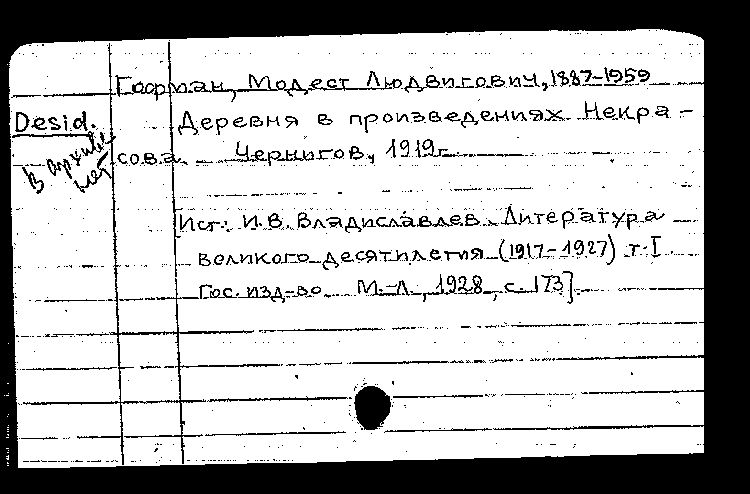 Гофман, Модест Людвигович, 1887-1959
Desid.
В архиве
нет
Деревня в произведениях Некра-
сова. Чернигов, 1919г.
Ист.: И.В. Владиславлев. Литература
великого десятилетия (1917-1927) т. I
Гос. изд-во М.-Л., 1928, с. 173].